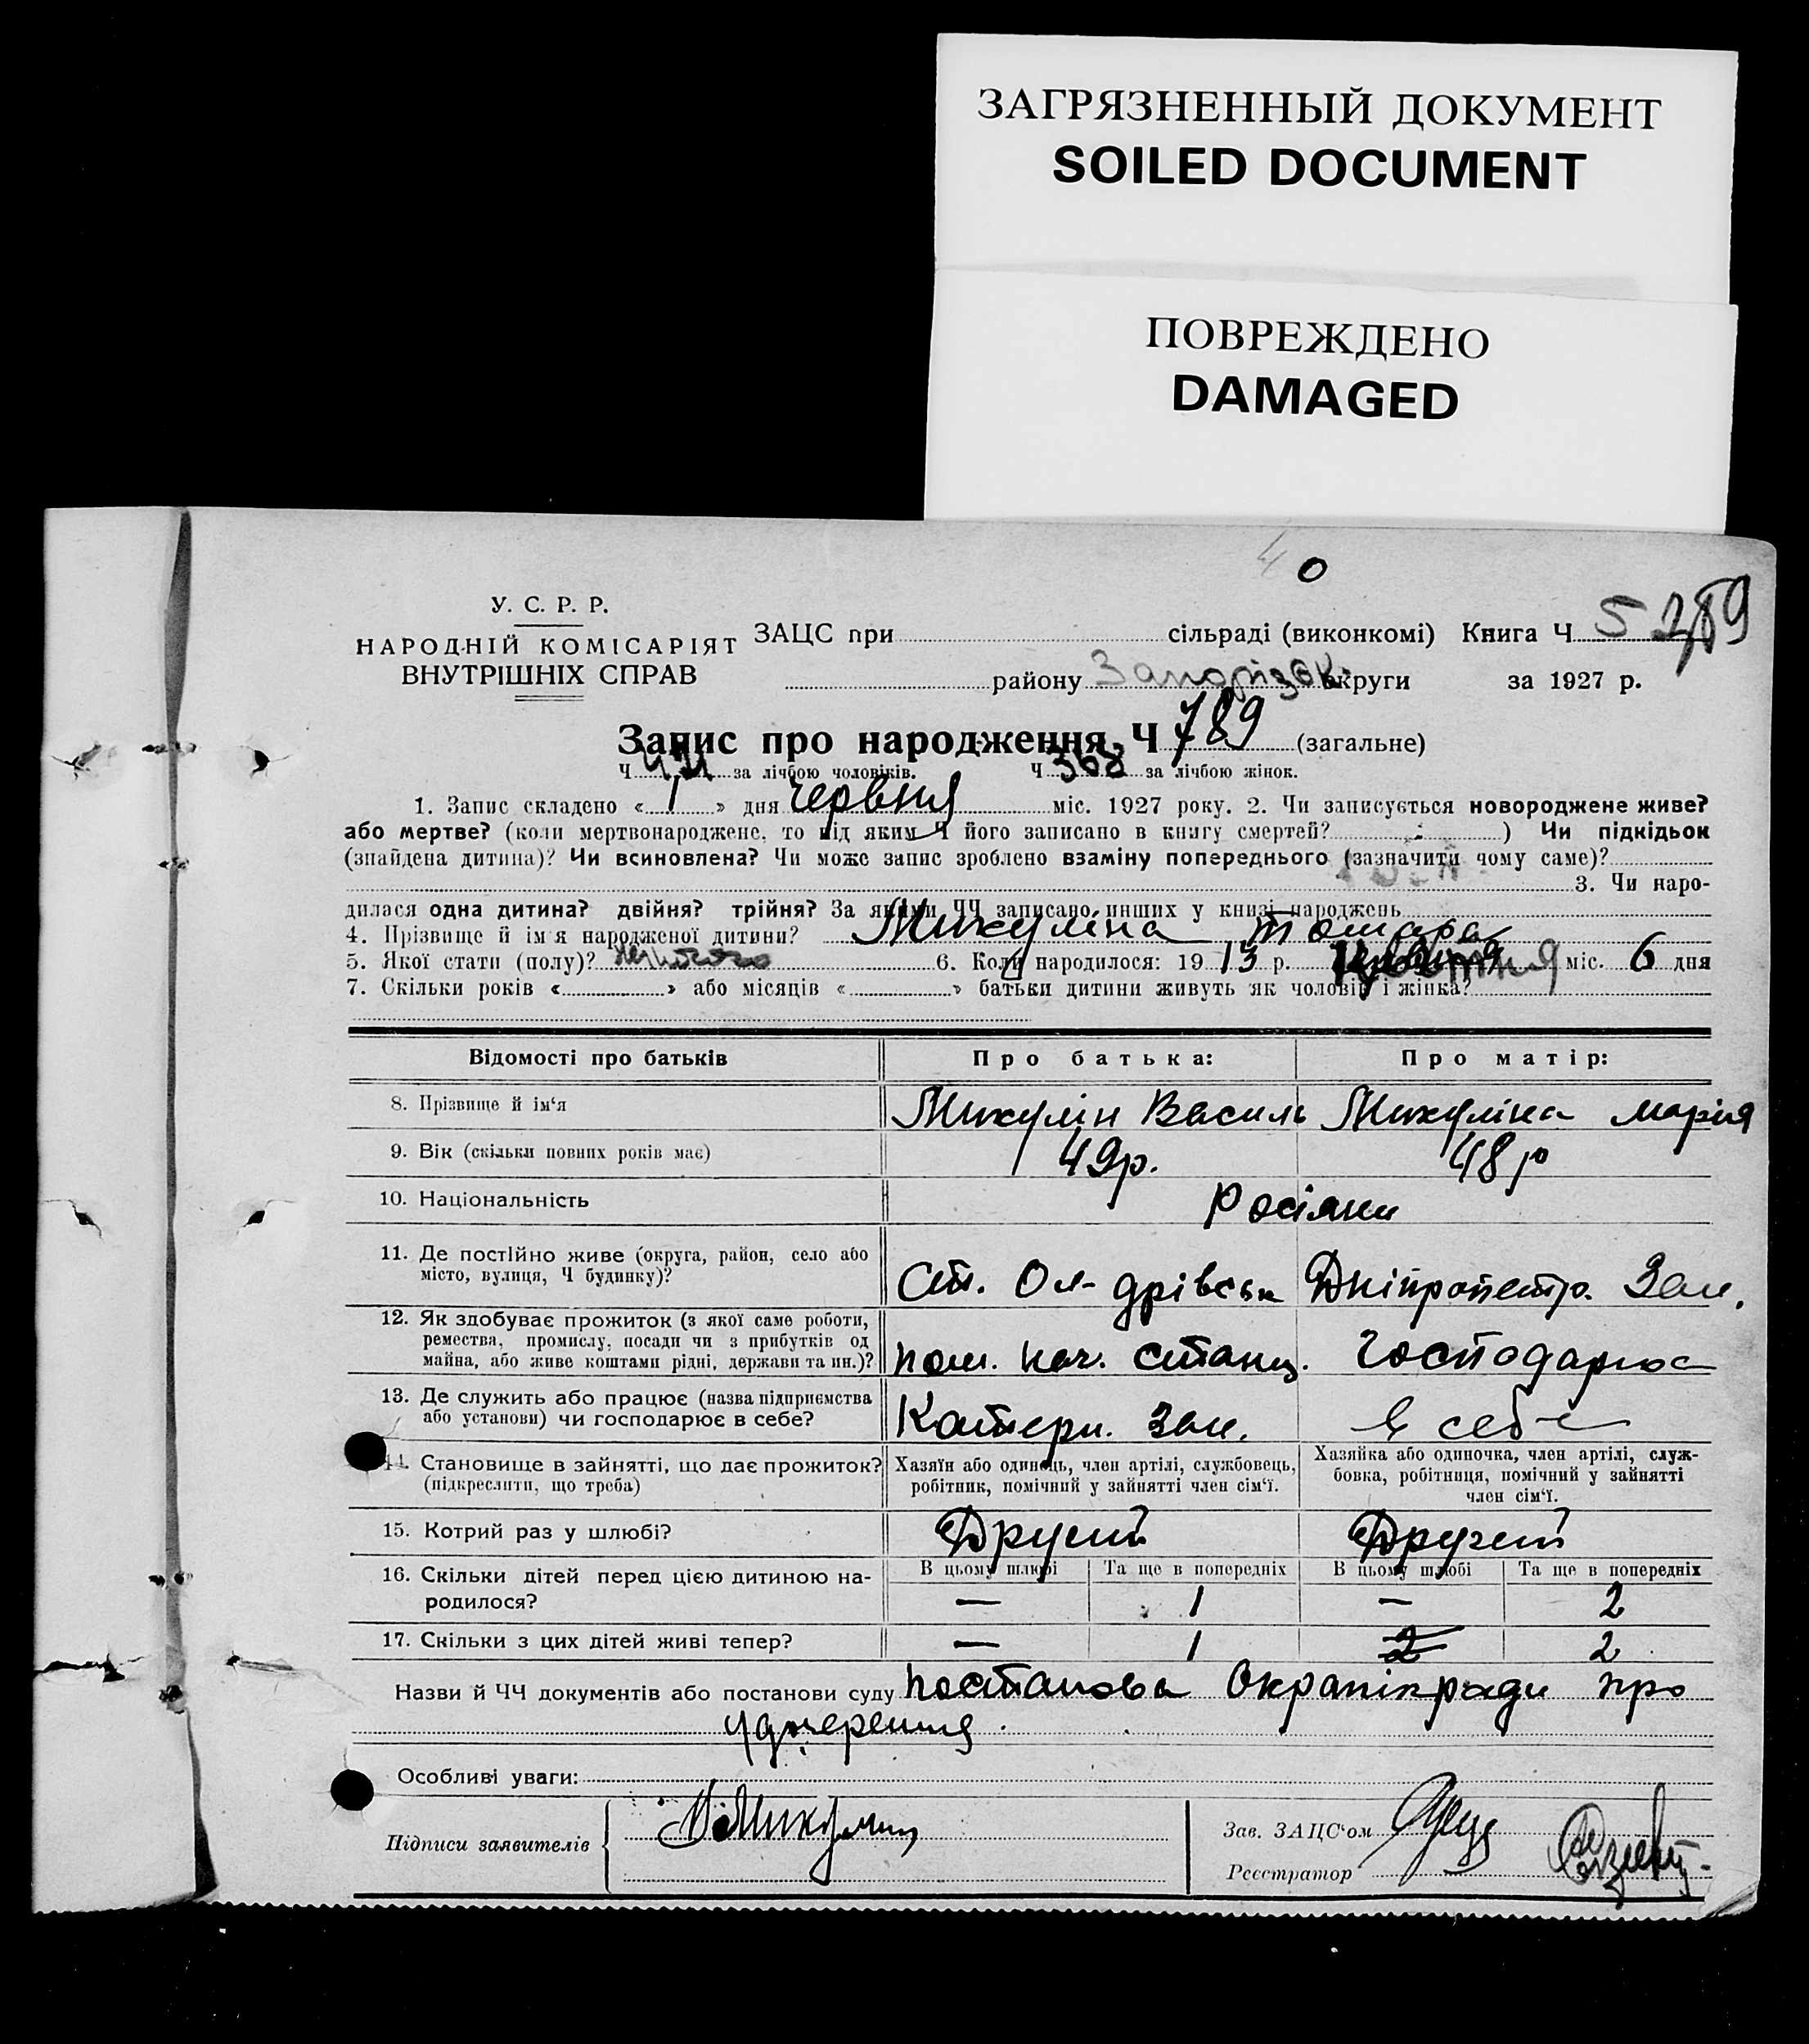 ЗАГРЯЗНЕННЫЙ ДОКУМЕНТ
SOILED DOCUMENT
ПОВРЕЖДЕНО
DAMAGED
40
У. С. Р. Р.
НАРОДНІЙ КОМІСАРІЯТ
ВНУТРІШНІХ СПРАВ
ЗАЦС при сільраді (виконкомі) Книга Ч 5
району Запорізьк. округи за 1927 р.
Запис про народження Ч 789 (загальне)
Ч за лічбою чоловіків. Ч 368 за лічбою жінок.
1. Запис складено « 1 » дня червня міс. 1927 року. 2. Чи записується новороджене живе?
або мертве? (коли мертвонароджене, то під яким Ч його записано в книгу смертей? ) Чи підкідьок
(знайдена дитина)? Чи всиновлена? Чи може запис зроблено взаміну попереднього (зазначити чому саме)?
3. Чи наро-
дилася одна дитина? двійня? трійня? За якими ЧЧ записано инших у книзі народжень
4. Прізвище й ім'я народженої дитини? Микуліна Тамара
5. Якої стати (полу)? жіночого 6. Коли народилося: 1913 р. міс. 6 дня
7. Скільки років « » або місяців « » батьки дитини живуть як чоловік і жінка?
Відомості про батьків Про батька: Про матір:
8. Прізвище й ім'я Микулін Василь Микуліна Марія
9. Вік (скільки повних років має) 49 р. 48 р
10. Національність Росіяни
11. Де постійно живе (округа, район, село або
місто, вулиця, Ч будинку)? Ст. Ол-дрівськ Дніпропетр. Зал.
12. Як здобуває прожиток (з якої саме роботи,
ремества, промислу, посади чи з прибутків од
майна, або живе коштами рідні, держави та ин.)? пом. нач. станц. господарює
13. Де служить або працює (назва підприємства
або установи) чи господарює в себе? Катерн. Зал. в себе
14. Становище в зайнятті, що дає прожиток? Хазяїн або одинець, член артілі, службовець, Хазяйка або одиночка, член артілі, служ-
(підкреслити, що треба) робітник, помічний у зайнятті член сім'ї. бовка, робітниця, помічний у зайнятті
член сім'ї.
15. Котрий раз у шлюбі? Другий Другий
16. Скільки дітей перед цією дитиною на- В цьому шлюбі Та ще в попередніх В цьому шлюбі Та ще в попередніх
родилося? — 1 — 2
17. Скільки з цих дітей живі тепер? — 1 2 2
Назви й ЧЧ документів або постанови суду постанова Окрапікради про
удочеріння
Особливі уваги:
Підписи заявителів
Зав. ЗАЦС'ом
Реєстратор